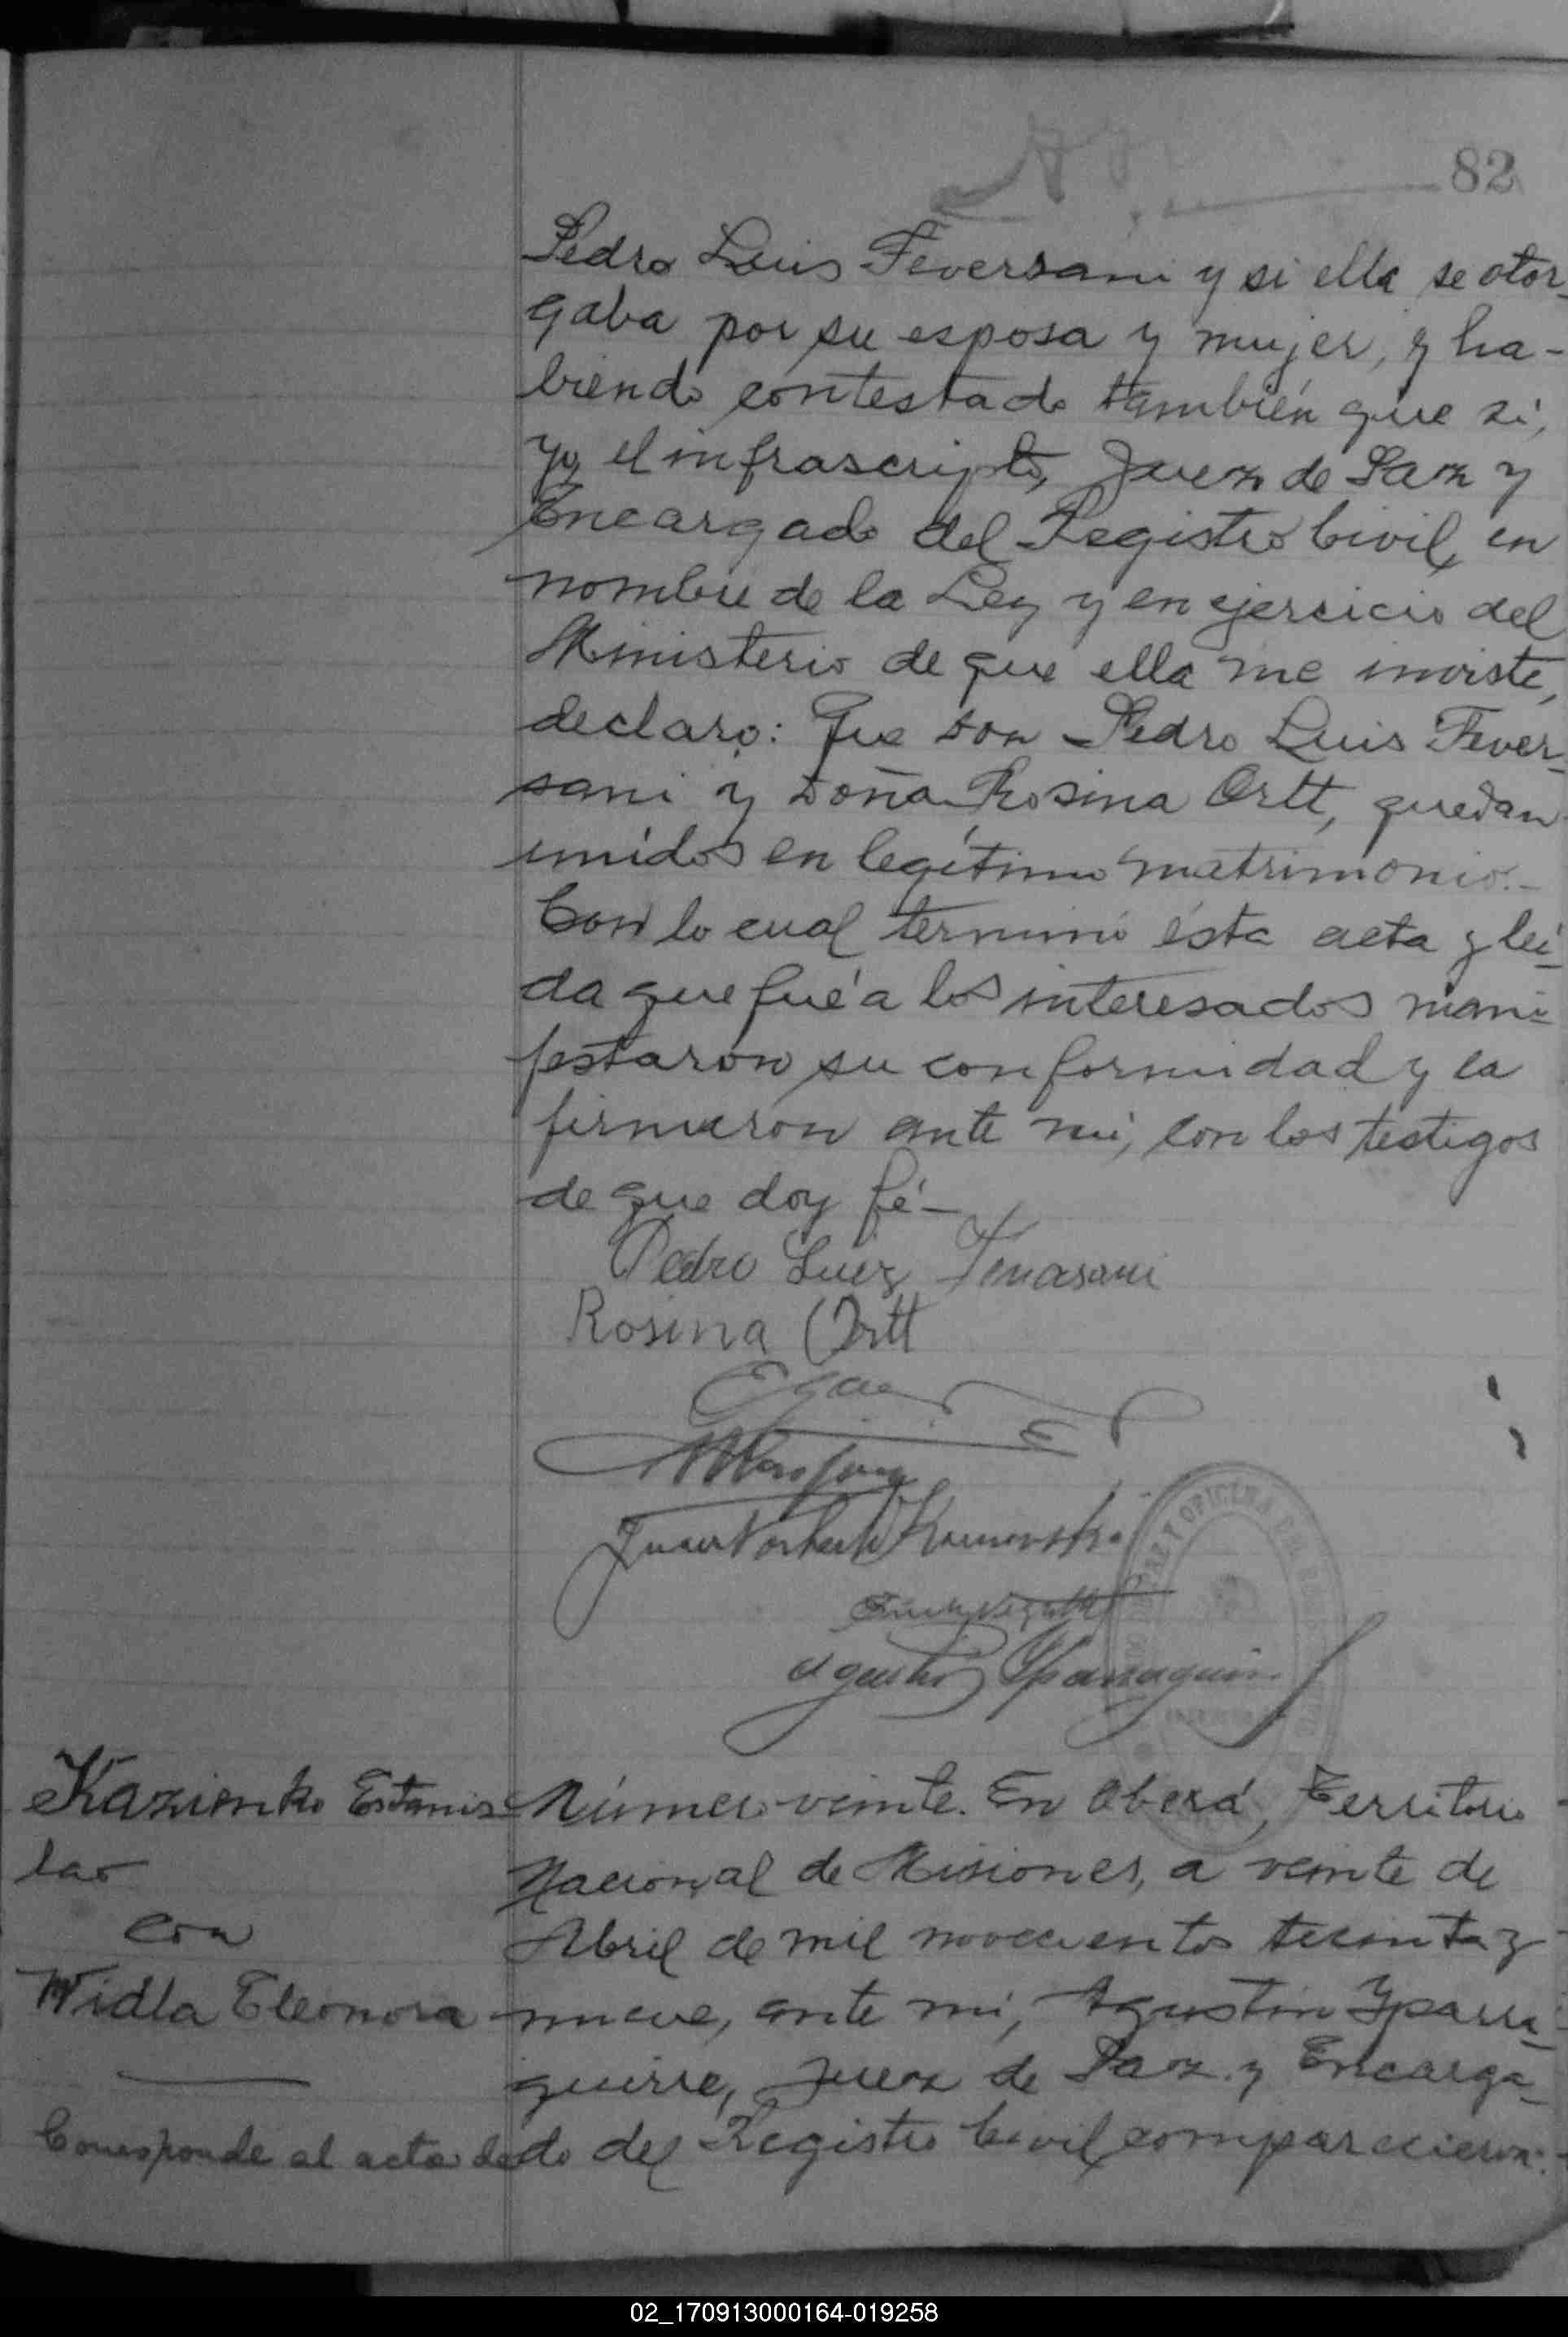 82
Pedro Luis Feversani y si ella se otor-
gaba por su esposa y mujer, y ha-
biendo contestado también que si,
yo, el infrascripto, Juez de Paz y
Encargado del Registro Civil, en
nombre de la Ley y en ejercicio del
Ministerio de que ella me inviste,
declaro: Que don Pedro Luis Fever-
sani y doña Rosina Ortt, quedan
unidos en legítimo matrimonio.-
Con lo cual terminó ésta acta y leí-
da que fué a los interesados mani-
festaron su conformidad y la
firmaron ante mi, con los testigos
de que doy fé-
Pedro Luiz
Rosina Ortt
Kazienko Estanis-
lao
con
Widla Eleonora
Corresponde al acta de
Número veinte. En Oberá, Territorio
Nacional de Misiones, a veinte de
Abril de mil novecientos treinta y
nueve, ante mi, Agustin Yparra-
guirre, Juez de Paz y Encarga-
do del Registro Civil comparecieron:
02_170913000164-019258